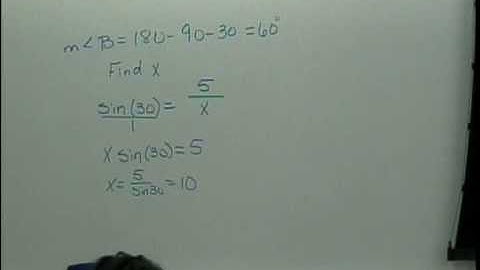 m∠B = 180 - 90 - 30 = 60°
Find x
sin(30)/1 = 5/x
x sin(30) = 5
x = 5/sin30 = 10